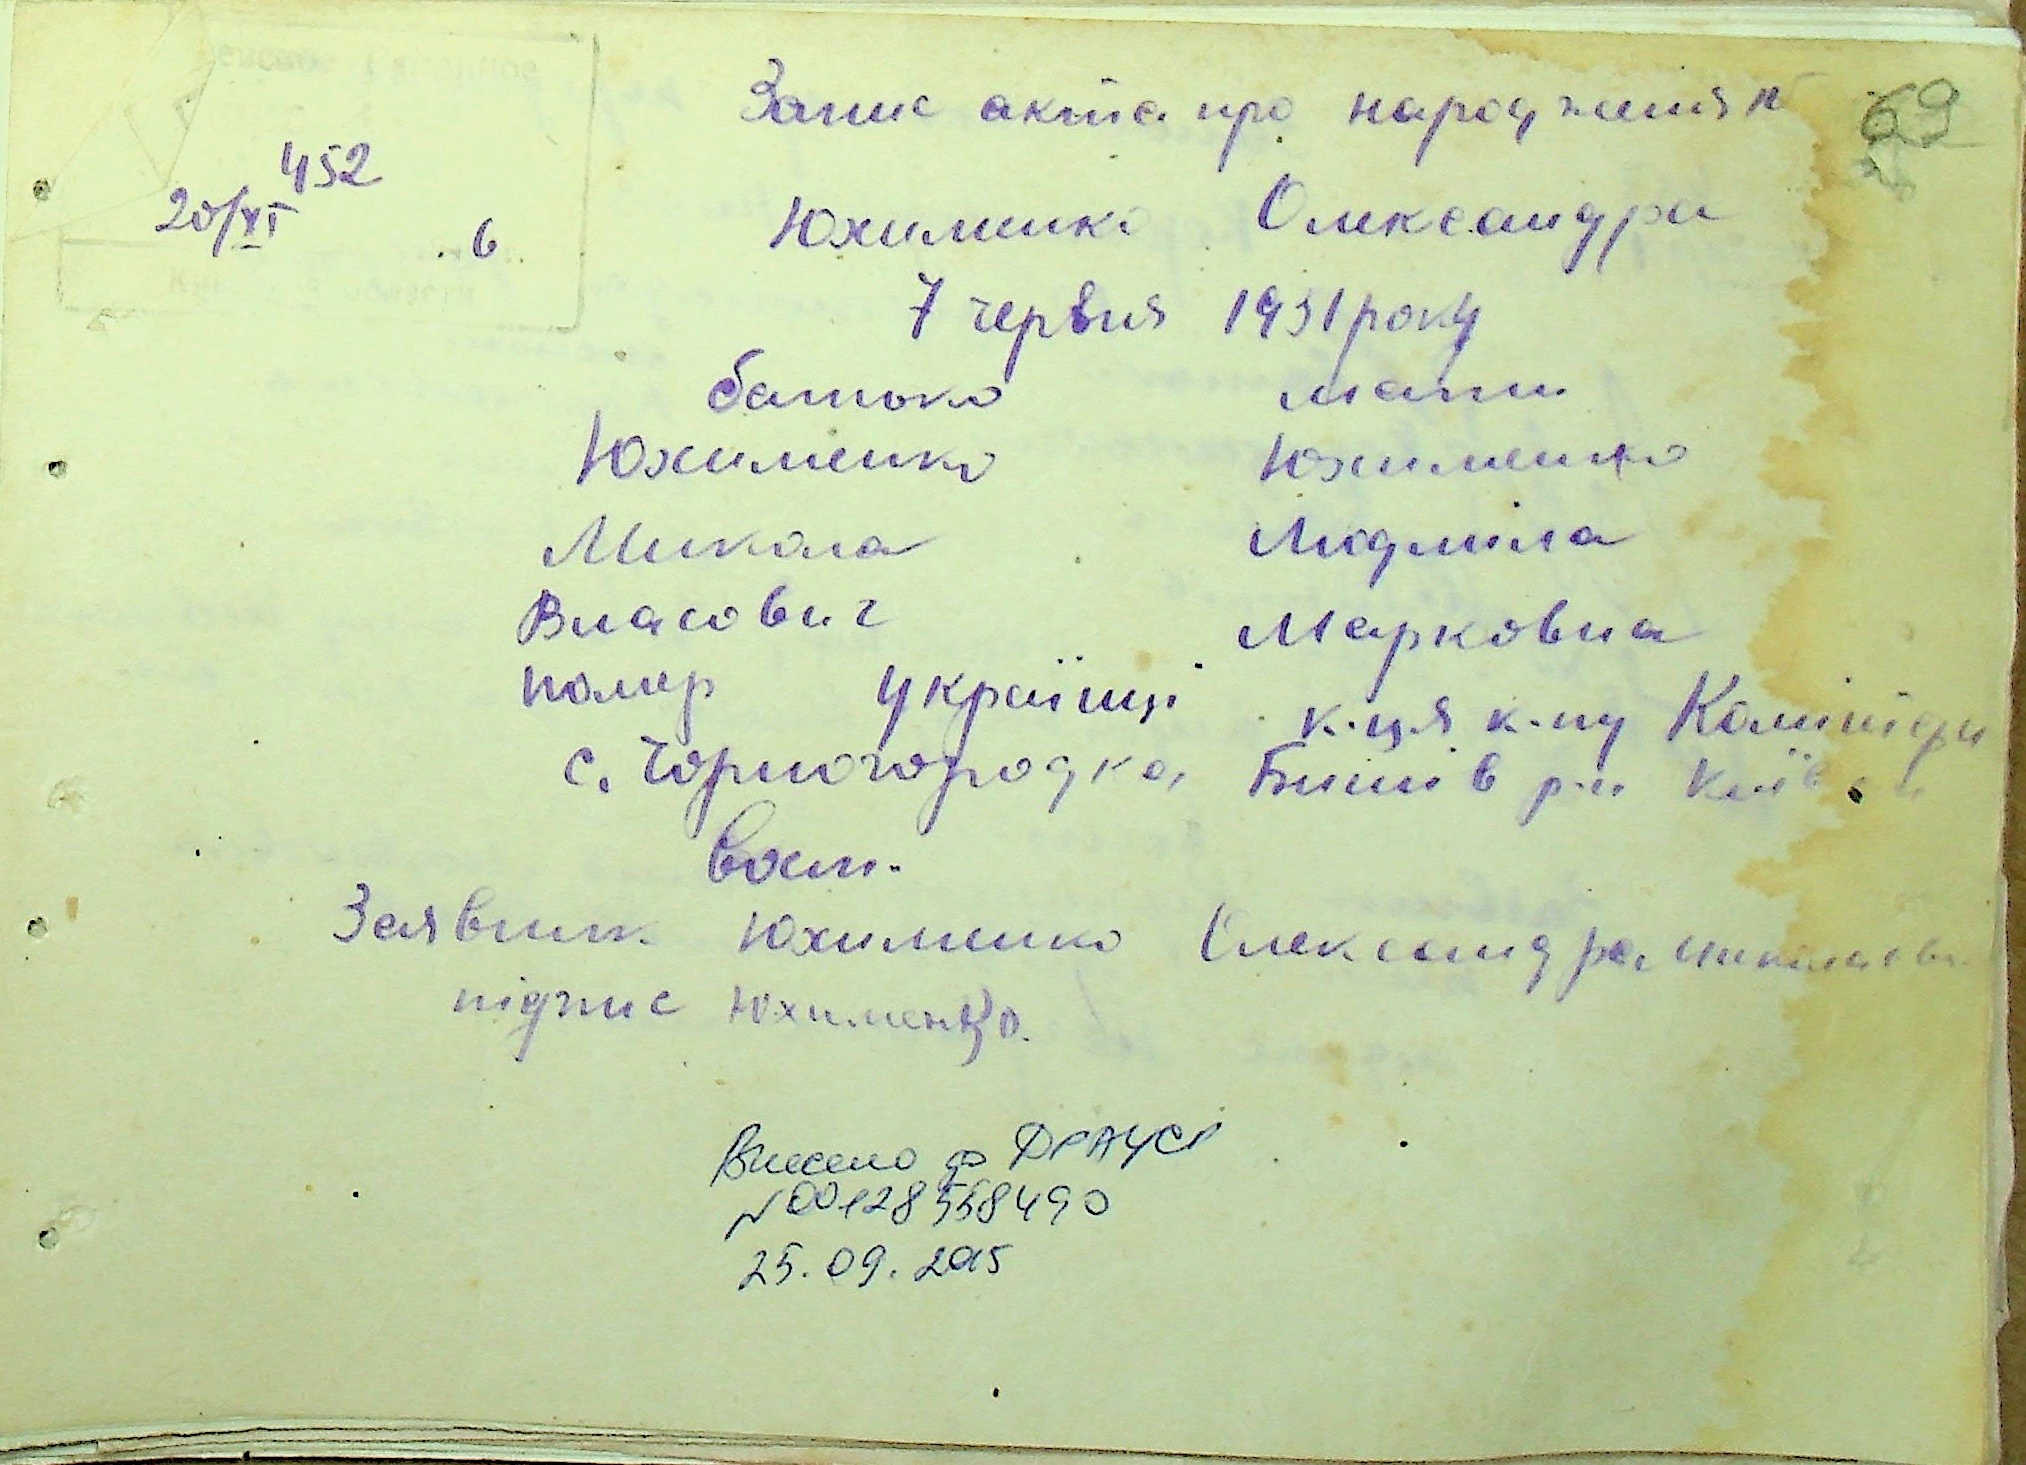 Запис акта про народження
69
452
20/XI
6
Юхименко Олександра
7 червня 1931 року
батько мати
Юхименко Юхименко
Микола Людмила
Власович Марковна
помер українці к-ця к-пу Комінтерн
с. Чорногородка, Бишів р-н Київ
вом.
Заявник Юхименко Олександра Миколаевн
підпис Юхименко.
Внесено до ДРАЦСГ
№00128558490
25.09.2015